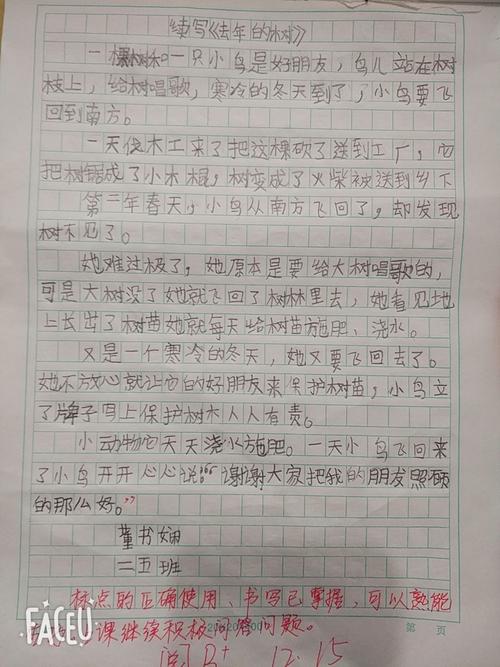 续写《去年的树》
一棵树和一只小鸟是好朋友，鸟儿站在树
枝上，给树唱歌，寒冷的冬天到了，小鸟要飞
回到南方。
一天伐木工来了把这棵砍了送到工厂，
把树锯成了小木棍，树变成了火柴被送到乡下
第二年春天，小鸟从南方飞回了，却发现
树不见了。
她难过极了，她原本是要给大树唱歌的，
可是大树没了她就飞回了树林里去，她看见地
上长出了树苗她就每天给树苗施肥、浇水。
又是一个寒冷的冬天，她又要飞回去了。
她不放心就让它的好朋友来保护树苗，小鸟立
了牌子写上保护树木人人有责。
小动物它天天浇水施肥。一天小鸟飞回来
了小鸟开开心心说：“谢谢大家把我的朋友照顾
的那么好。”
董书娴
二五班
标点的正确使用、书写已掌握，可以熟能
课继续积极回答问题。
B+ 12.15
FACEU
第 页